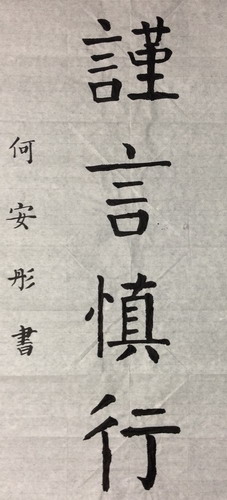 謹言慎行
何安彤書